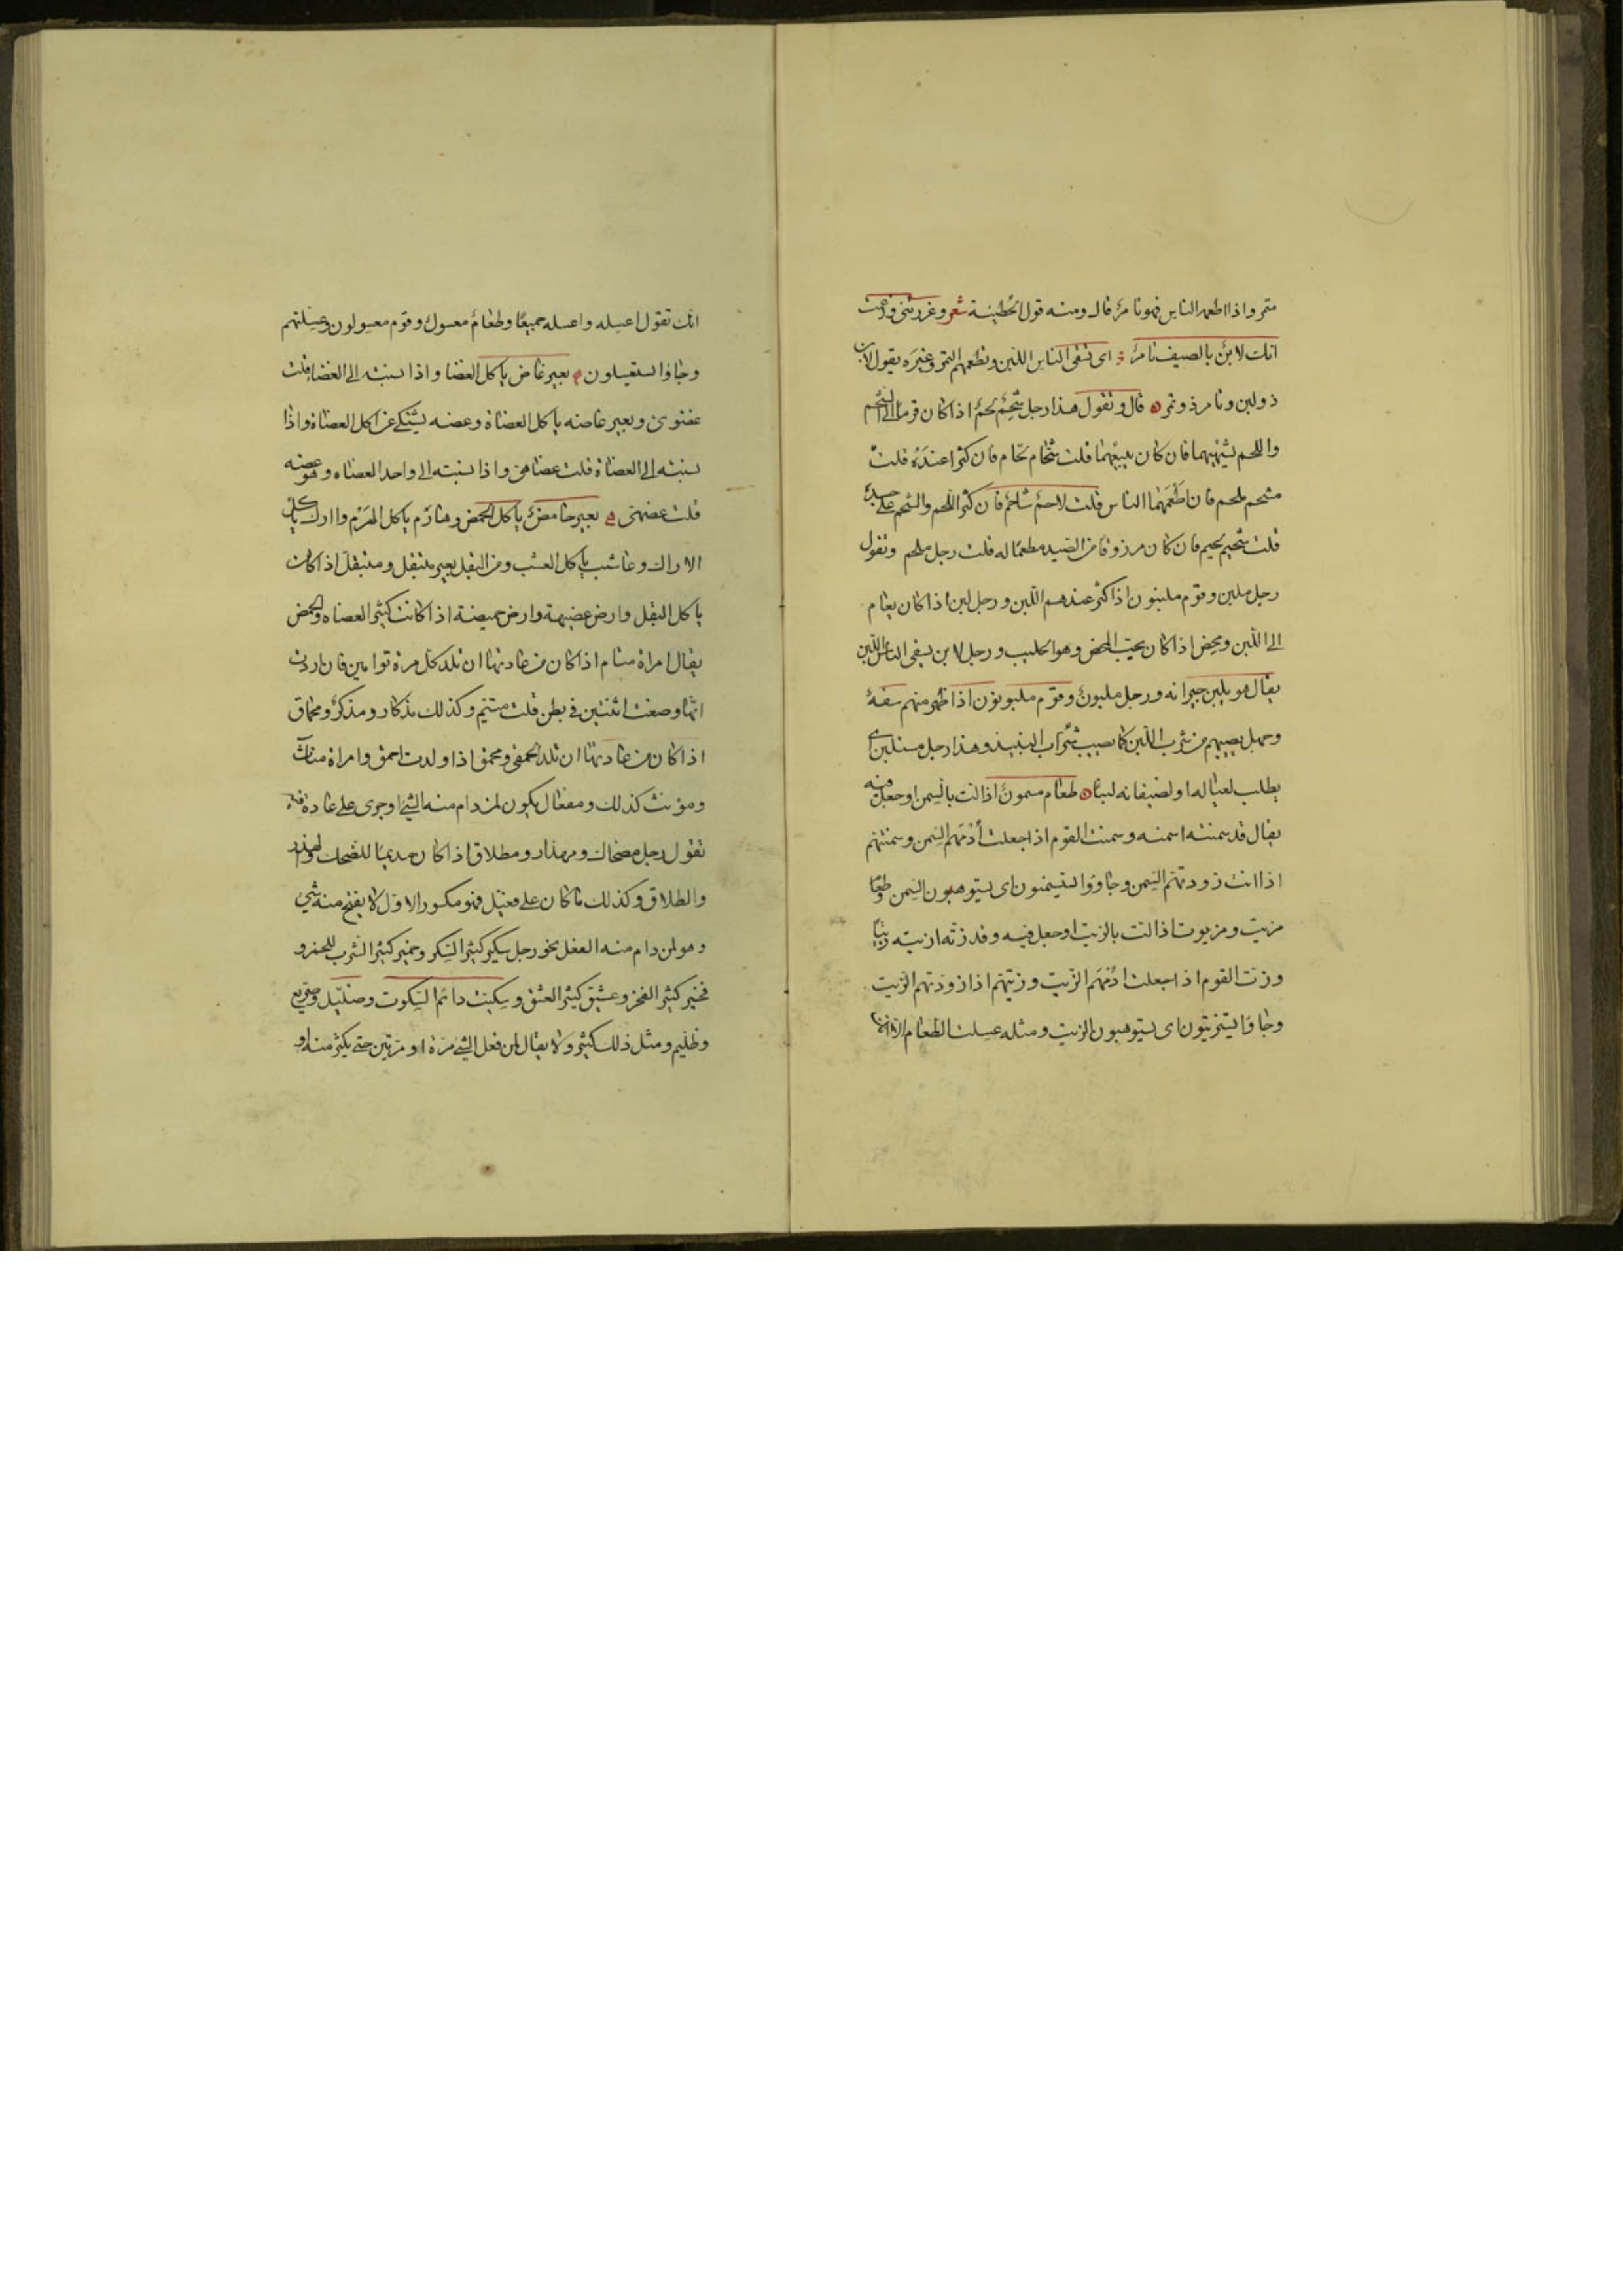 متمر واذا اطعمه الناس فهو تامر قال ومنه قول الحطيئة شعر وغررتنى وزعمت
انك لابن بالصيف تامر اى تسقى الناس اللبن وتطعمهم التمر وغيره يقول لابن
ذو لبن وتامر ذو تمر قال وتقول هذا رجل شحم لحم اذا كان قرما الى الشحم
واللحم يشتهيهما فان كان يبيعهما قلت شحام لحام فان كثرا عنده قلت
مشحم ملحم فان اطعمهما الناس قلت لاحم شاحم فان كثر اللحم والشحم على جسده
قلت شحيم لحيم فان كان مرزوقا من الصيد مطعما له قلت رجل ملحم وتقول
رجل ملبن وقوم ملبنون اذا كثر عندهم اللبن ورجل لبن اذا كان يعام
الى اللبن ومحض اذا كان يحب المحض وهو الحليب ورجل لابن يسقى الناس اللبن
يقال هو يلبن جيرانه ورجل ملبون وقوم ملبونون اذا ظهر منهم سفه
وجهل يصيبهم من شرب اللبن كما يصيب شراب النبيذ وهذا رجل مستلبن اى
يطلب لعياله او لضيفانه لبنا طعام مسمون اذا لت بالسمن او جعل فيه
يقال قد سمنته اسمنه وسمنت القوم اذا جعلت أدمهم السمن وسمنتهم
اذا انت زودتهم السمن وجاؤوا يستسمنون اى يستوهبون السمن وطعام
مزيت ومزيوت اذا لت بالزيت او جعل فيه وقد زته ازيته زيتا
وزت القوم اذا جعلت ادمهم الزيت وزيتهم اذا زودتهم الزيت
وجاؤا يستزيتون اى يستوهبون الزيت ومثله عسلت الطعام الا
انك تقول اعسله واعسله جميعا وطعام معسول وقوم معسولون وعسلتهم
وجاؤا يستعسلون بعير غاض ياكل الغضا واذا نسبته الى الغضا قلت
غضوى وبعير عاضه ياكل العضاة وعضه يشتكى عن اكل العضاة واذا
نسبته الى العضاة قلت عضاهى واذا نسبته الى واحد العضاه وهو عضه
قلت عضهى بعير حامض ياكل الحمض وهارم ياكل الهرم واارك ياكل
الاراك وعاشب ياكل العشب ومن البقل بعير متبقل ومبتقل اذا كان
ياكل البقل وارض عضيهة وارض حميضة اذا كانت كثير العضاه والحمض
يقال امراة متام اذا كان من عادتها ان تلد كل مرة توامين فان اردت
انها وضعت اثنتين فى بطن قلت متئم وكذلك مذكار ومذكر ومحماق
اذا كان من عادتها ان تلد الحمقى ومحمق اذا ولدت احمق وامراة مئناث
ومؤنث كذلك ومفعال يكون لمن دام منه الشئ او جرى على عادة فيه
تقول رجل مضحاك ومهذار ومطلاق اذا كان مديما للضحك والهذر
والطلاق وكذلك ما كان على فعيل فهو مكسور الاول لا يفتح منه شئ
وهو لمن دام منه الفعل نحو رجل سكير كثير السكر وخمير كثير الشرب للخمر و
فخير كثير الفخر وعشيق كثير العشق وسكيت دائم السكوت وضليل وصريع
وظليم ومثل ذلك كثير ولا يقال لمن فعل الشئ مرة او مرتين حتى يكثر منه او